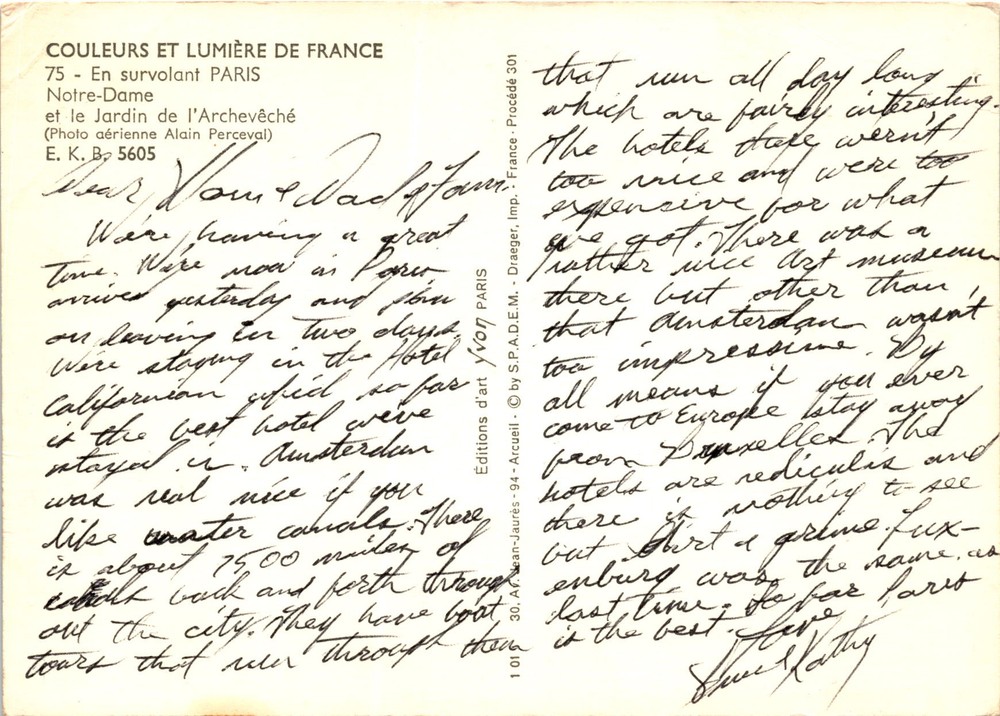 COULEURS ET LUMIÈRE DE FRANCE
75 - En survolant PARIS
Notre-Dame
et le Jardin de l'Archevêché
(Photo aérienne Alain Perceval)
E. K. B. 5605
Dear Mom & Dad & Fam
We're having a great
time. We're now in Paris
arrived yesterday and plan
on leaving in two days.
We're staying in the Hotel
Californian which so far
is the best hotel we've
stayed in. Amsterdam
was real nice if you
like water canals. There
is about 7500 miles of
canals back and forth through
out the city. They have boat
tours that run through them
Éditions d'art yvon PARIS
1 01 30. Av. Jean-Jaurès - 94 - Arcueil - © by S.P.A.D.E.M. - Draeger, Imp. - France - Procédé 301
that run all day long
which are fairly interesting.
The hotels there wern't
too nice and were too
expensive for what
we got. There was a
rather nice art museum
there but other than
that Amsterdam wasn't
too impressive. By
all means if you ever
come to Europe stay away
from Bruxelles. The
hotels are rediculis and
there is nothing to see
but dirt & grime. Lux-
enburg was the same as
last time. So far Paris
is the best. Love
Kathy